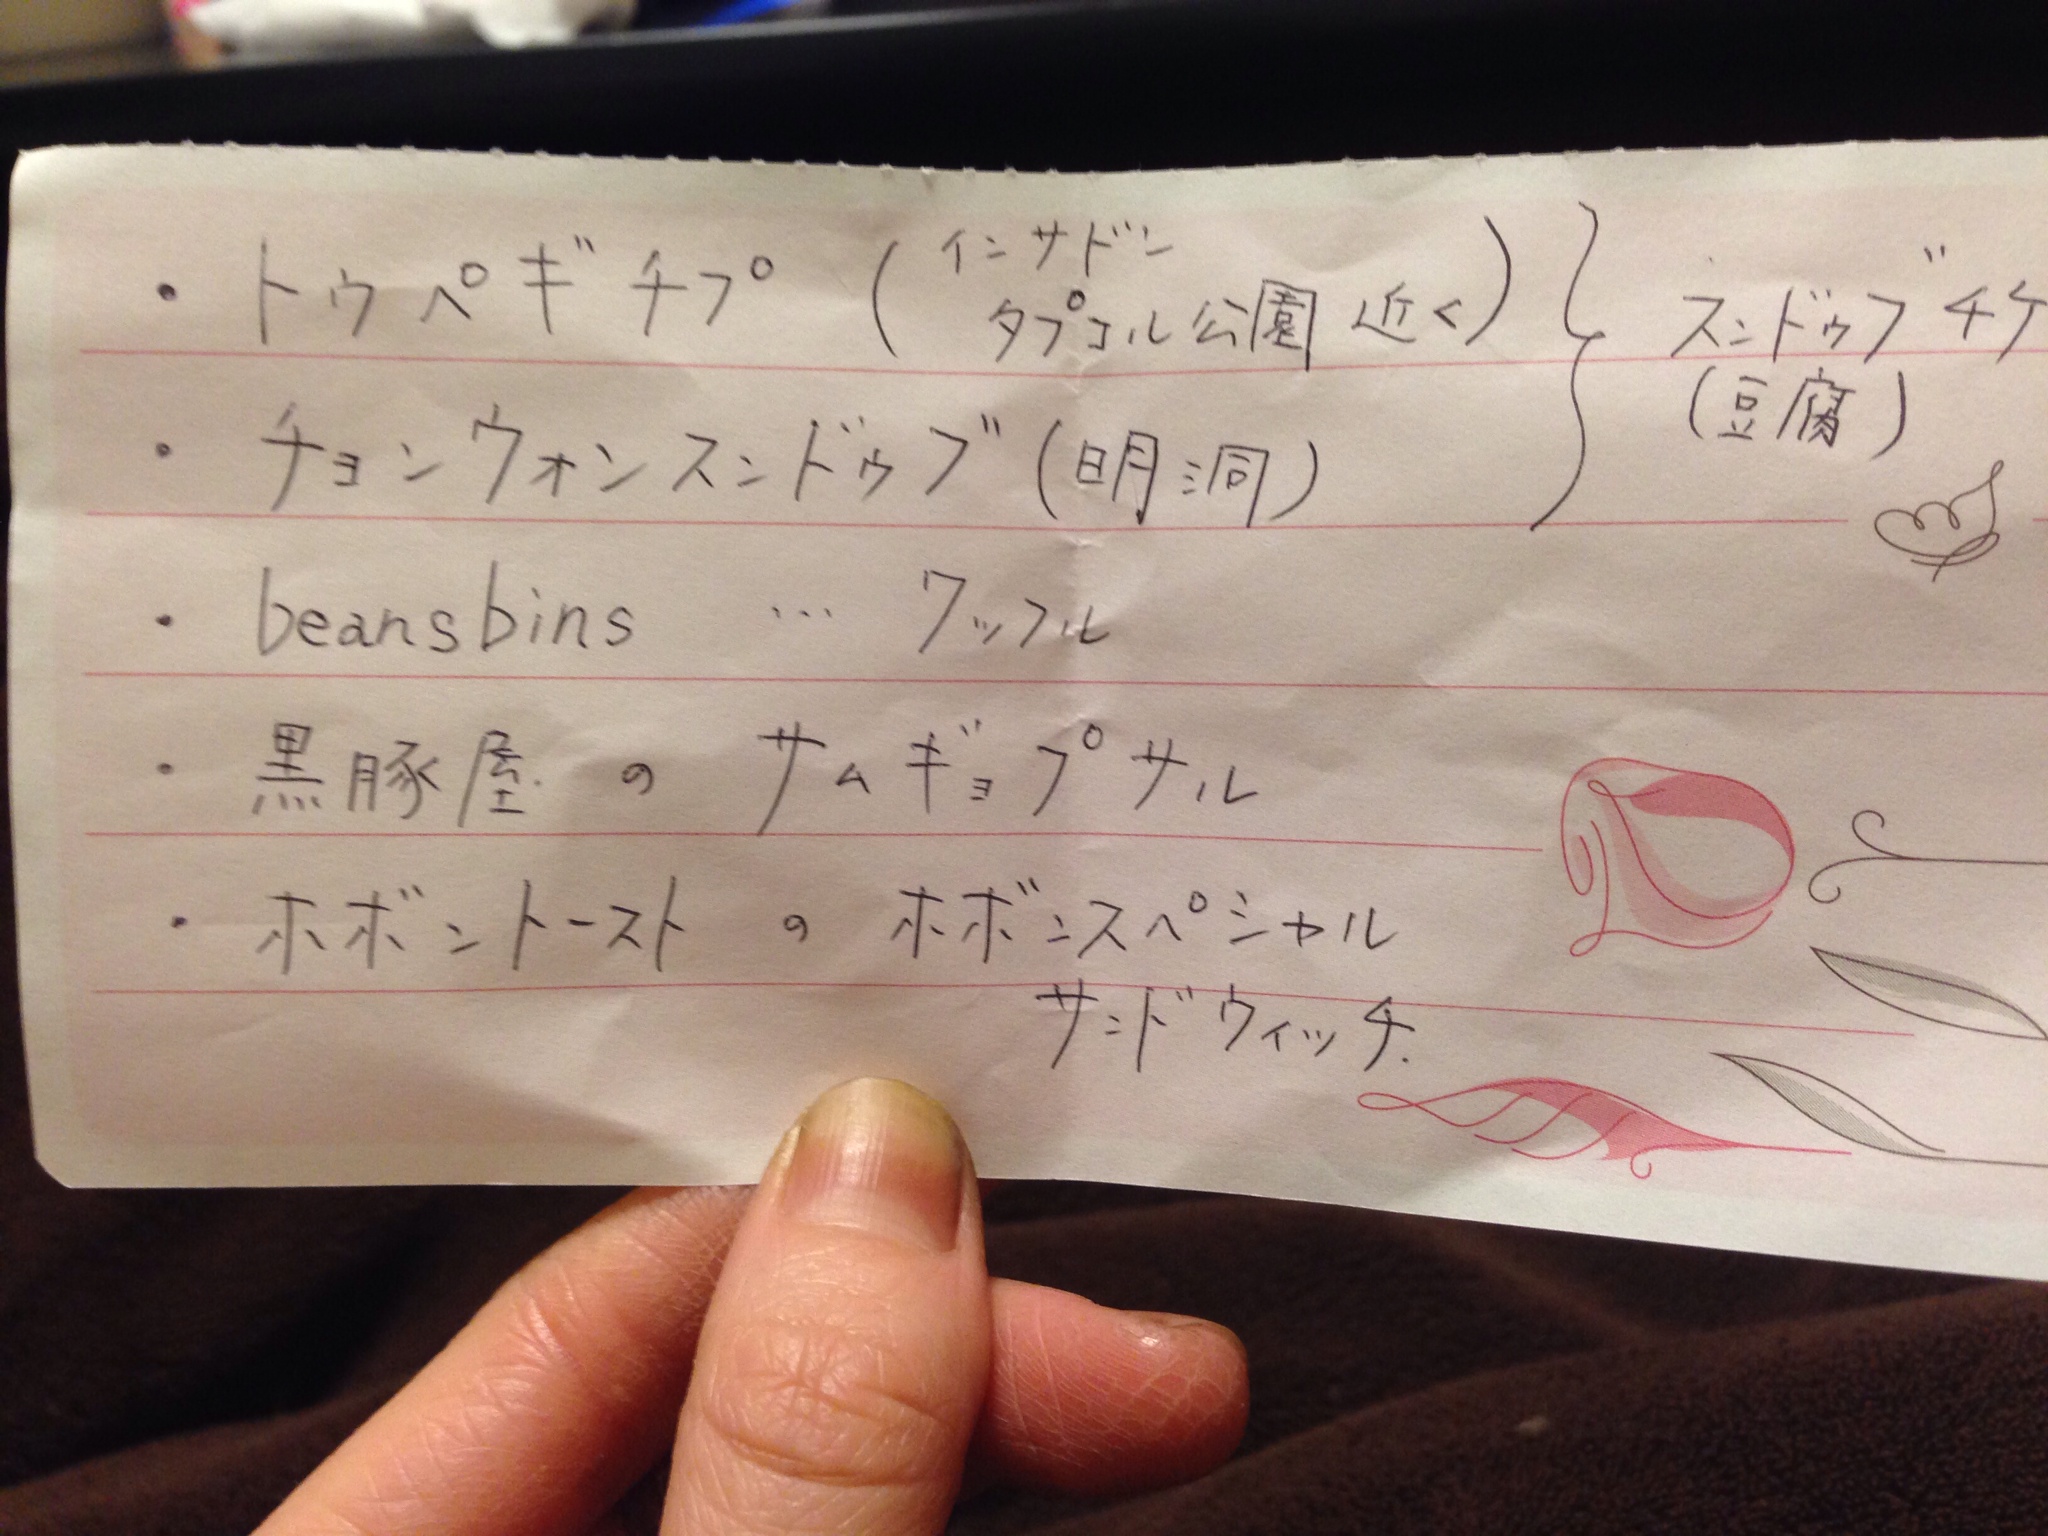 ・トゥペギチプ (インサドン
タプコル公園 近く)
スンドゥブチゲ
(豆腐)
・チョンウォンスンドゥブ (明洞)
・beansbins … ワッフル
・黒豚屋 の サムギョプサル
・ホボントースト の ホボンスペシャル
サンドウィッチ.